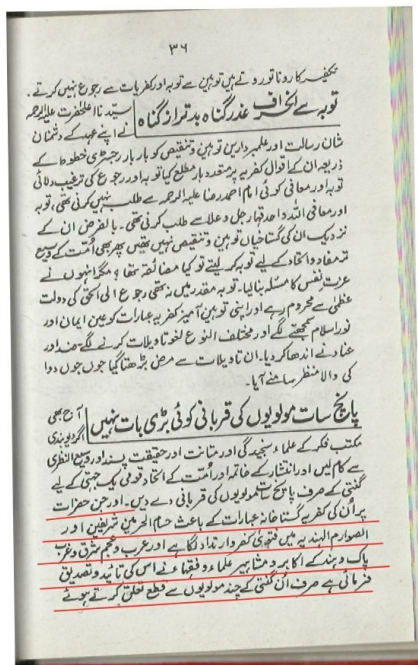 ۳۶
تکفیر کا رونا تو روتے ہیں توہین سے توبہ اور کفریات سے رجوع نہیں کرتے۔
توبہ سے انحراف عذر گناہ بدتر از گناہ
سیّدنا اعلیٰحضرت علیہ الرحمہ
نے اپنے عہد کے دشمنان
شان رسالت اور علمبردارین توہین و تنقیص کو بار بار رجسٹری خطوط کے
ذریعہ ان کے اقوال کفریہ پر متعدد بار مطلع کیا توبہ اور رجوع کی ترغیب دلائی
توبہ اور معافی کوئی امام احمد رضا علیہ الرحمہ سے طلب نہیں کرنی تھی، توبہ
اور معافی اللہ واحد قہار جل و علا سے طلب کرنی تھی۔ بالفرض ان کے
نزدیک ان کی گستاخیاں توہین و تنقیص نہیں تھیں پھر بھی اُمّت کے وسیع
تر مفاد و اتحاد کے لیے توبہ کر لیتے تو کیا مضائقہ تھا؟ مگر انہوں نے
عزت نفس کا مسئلہ بنا لیا۔ توبہ مقدر میں نہ تھی رجوع الی الحق کی دولت
عظمیٰ سے محروم رہے اور اپنی توہین آمیز کفریہ عبارات کو عین ایمان اور
نور اسلام سمجھنے لگے اور مختلف النوع لغو تاویلات کرنے لگے ضد اور
عناد نے اندھا کر دیا۔ ان تاویلات سے مرض بڑھتا گیا جوں جوں دوا
کی والا منظر سامنے آیا۔
پانچ سات مولویوں کی قربانی کوئی بڑی بات نہیں
آج بھی
اگر دیوبندی
مکتب فکر کے علماء سنجیدگی اور متانت اور حقیقت پسند اور وسیع النظری
سے کام لیں اور انتشار کے خاتمہ اور اُمّت کے اتحاد قومی یک جہتی کے لیے
گنتی کے صرف پانچ سات مولویوں کی قربانی دے دیں۔ اور جن حضرات
پر اُن کی کفریہ گستاخانہ عبارات کے باعث حسام الحرمین شریفین اور
الصوارم الہندیہ میں فتویٰ کفر و ارتداد لگا ہے اور عرب و عجم شرق و غرب
پاک و ہند کے اکابر و مشاہیر علماء و فقہاء نے اس کی تائید و تصدیق
فرمائی ہے صرف اُن گنتی کے چند مولویوں سے قطع تعلق کرتے ہوئے